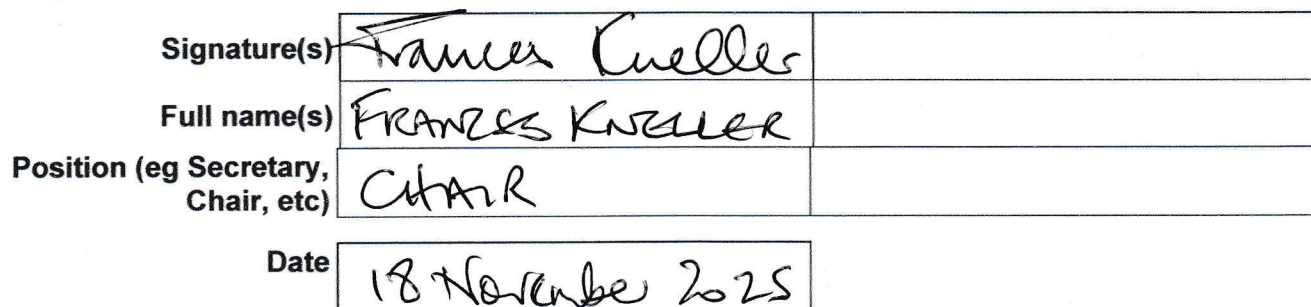 Signature(s) Frances Kneller
Full name(s) FRANCES KNELLER
Position (eg Secretary,
Chair, etc) CHAIR
Date 18 November 2025